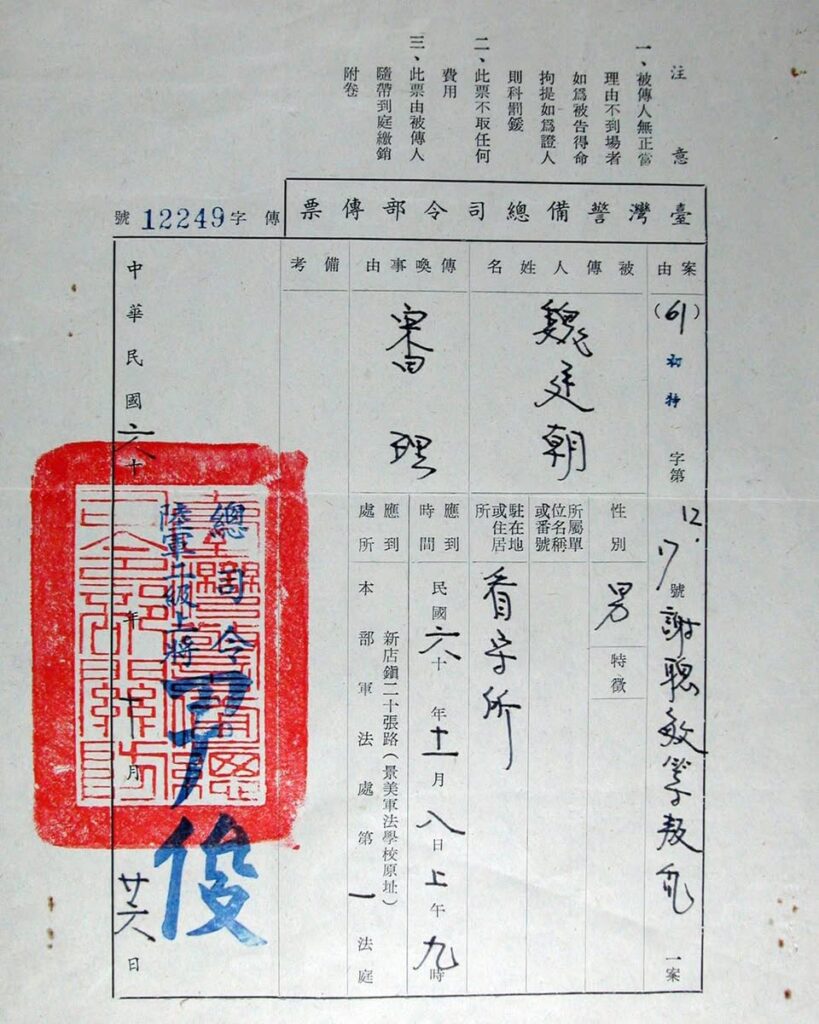 注意
一、被傳人無正當
理由不到場者
如爲被告得命
拘提如爲證人
則科罰鍰
二、此票不取任何
費用
三、此票由被傳人
隨帶到庭繳銷
附卷
臺灣警備總司令部傳票
傳字12249號
案由
(61)初特字第12.17號謝聰敏等叛亂一案
被傳人姓名
魏廷朝
性別
男
特徵
所屬單
位名稱
或番號
駐在地
或住居
所
看守所
傳喚事由
審理
應到
時間
民國六十年十一月八日上午九時
應到
處所
新店鎮二十張路(景美軍法學校原址)
本部軍法處第一法庭
備考
總司令
陸軍二級上將
尹俊
臺灣警備總
司令部關防
中華民國六十年十月廿六日